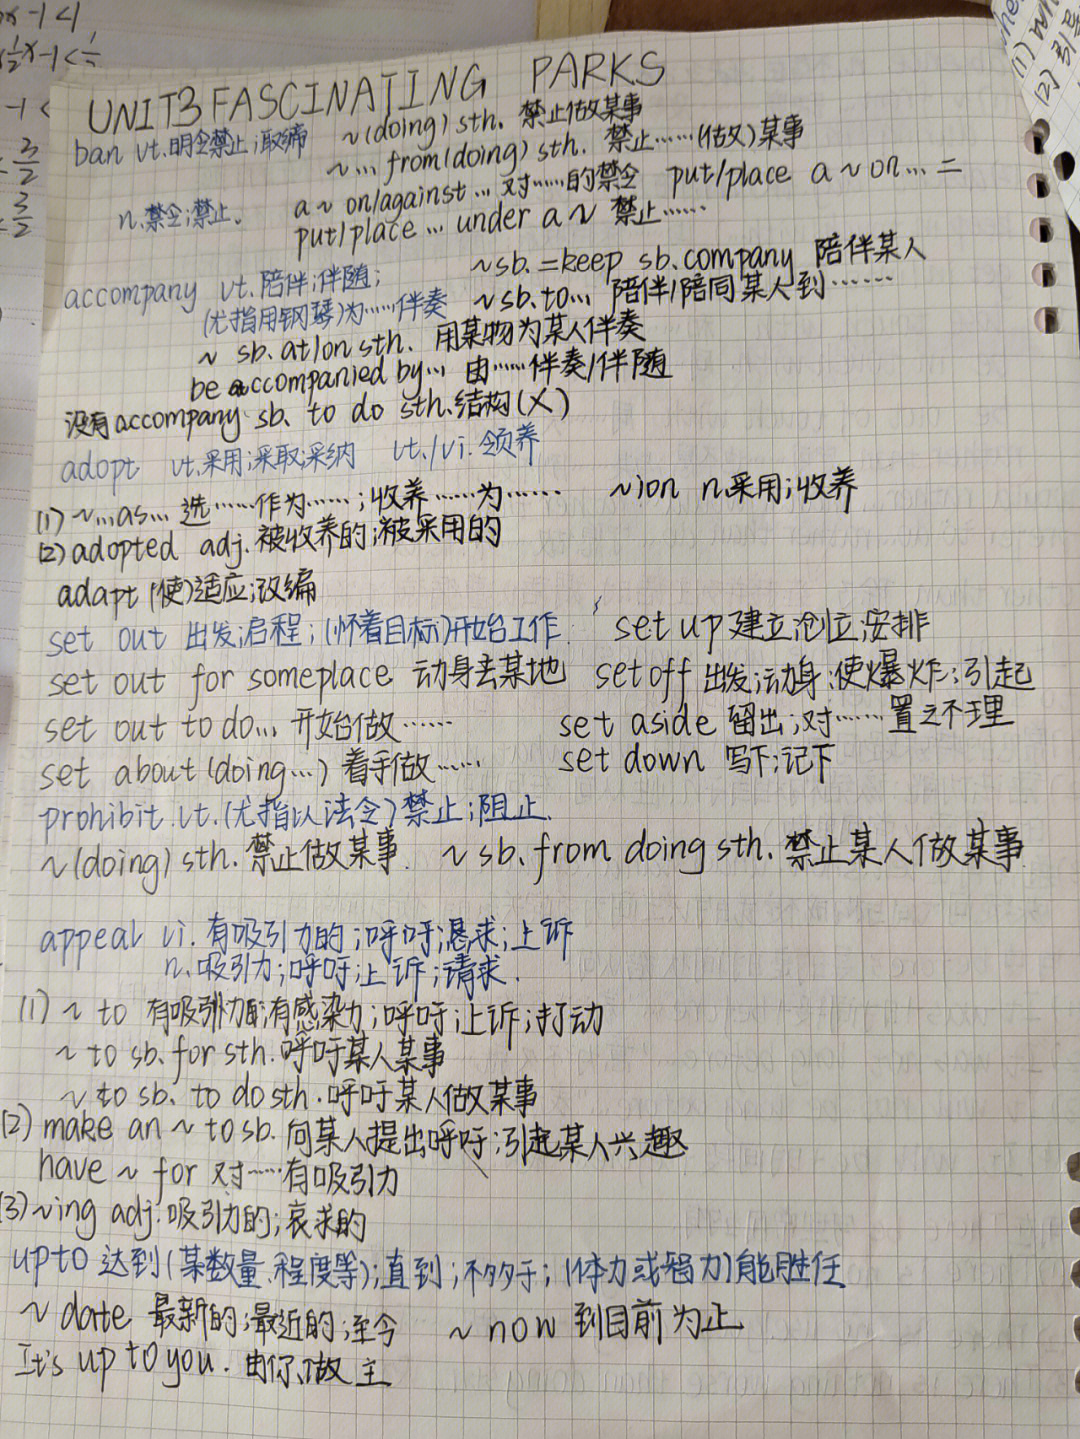 UNIT3 FASCINATING PARKS
ban vt.明令禁止;取缔 ~(doing) sth. 禁止做某事
~... from(doing) sth. 禁止……(做)某事
n.禁令;禁止。 a ~ on/against ... 对……的禁令 put/place a ~ on... =
put/place ... under a ~ 禁止……
~sb. =keep sb. company 陪伴某人
accompany vt.陪伴;伴随;
(尤指用钢琴)为……伴奏 ~sb.to... 陪伴/陪同某人到……
~ sb. at/on sth. 用某物为某人伴奏
be accompanied by... 由……伴奏/伴随
没有accompany sb. to do sth.结构(X)
adopt vt.采用;采取;采纳 vt./vi.领养
(1) ~...as... 选……作为……;收养……为…… ~ion n.采用;收养
(2) adopted adj.被收养的;被采用的
adapt (使)适应;改编
set out 出发;启程;(怀着目标)开始工作. set up 建立;创立;安排
set out for someplace 动身去某地 set off 出发;动身;使爆炸;引起
set out to do... 开始做…… set aside 留出;对……置之不理
set about (doing...) 着手做…… set down 写下;记下
prohibit vt.(尤指以法令)禁止;阻止.
~(doing) sth. 禁止做某事. ~ sb. from doing sth. 禁止某人做某事
appeal vi.有吸引力的;呼吁;恳求;上诉
n.吸引力;呼吁;上诉;请求.
(1) ~ to 有吸引力;有感染力;呼吁;上诉;打动
~ to sb. for sth.呼吁某人某事
~ to sb. to do sth.呼吁某人做某事
(2) make an ~ to sb. 向某人提出呼吁;引起某人兴趣
have ~ for 对……有吸引力
(3) ~ing adj.吸引力的;哀求的
up to 达到(某数量、程度等);直到;不多于;(体力或智力)能胜任
~ date 最新的;最近的;至今 ~ now 到目前为止
It's up to you. 由你做主